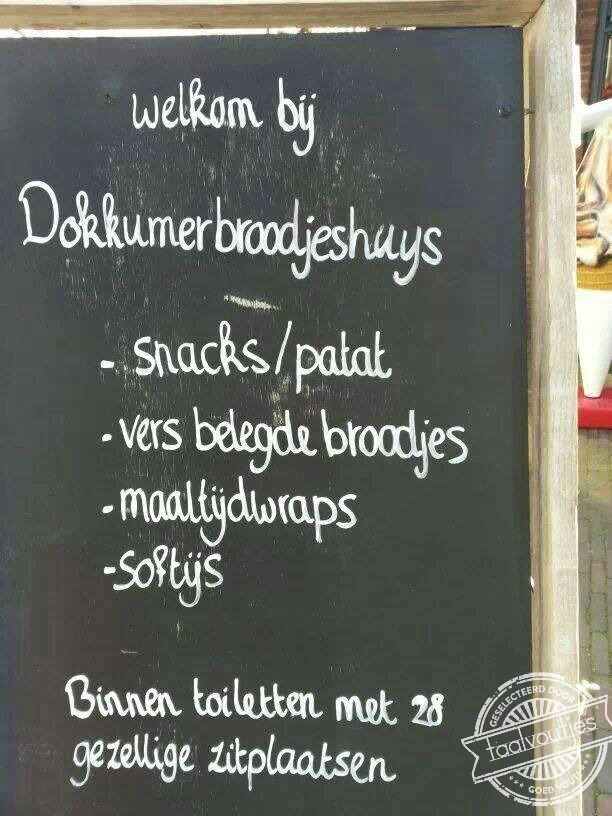 welkom bij
Dokkumerbroodjeshuys
- snacks/patat
- vers belegde broodjes
- maaltijdwraps
- softijs
Binnen toiletten met 28
gezellige zitplaatsen
GESELECTEERD DOOR
taalvoutjes
GOED VOUT